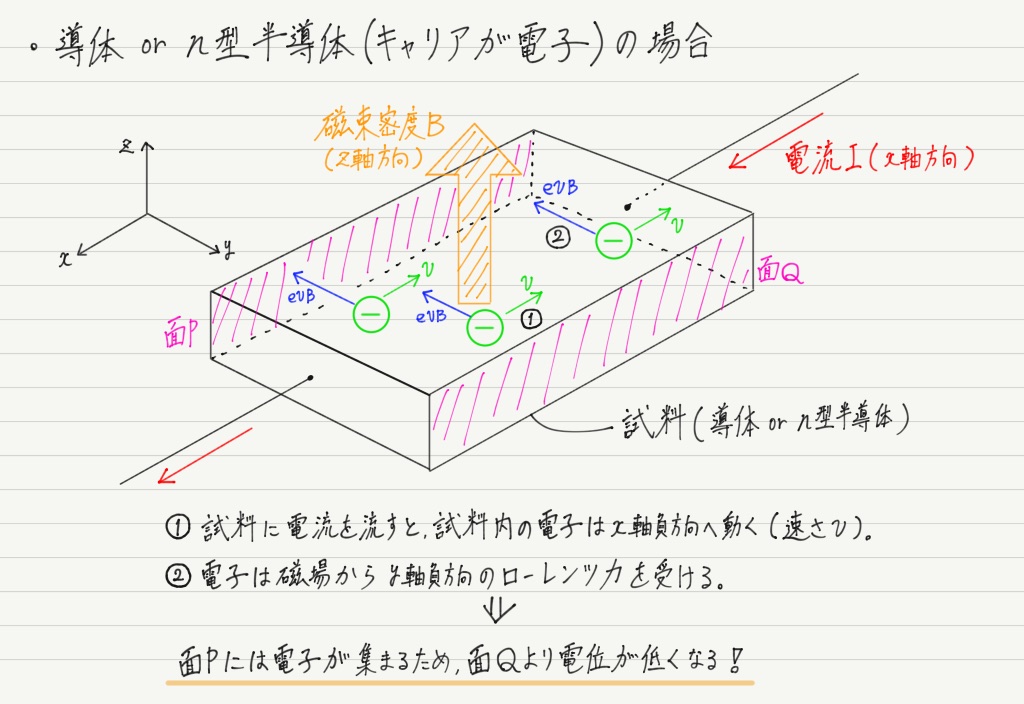 ・導体 or n型半導体(キャリアが電子)の場合
磁束密度B
(z軸方向)
電流I(x軸方向)
z
x
y
evB
②
v
面Q
v
evB
v
evB
①
面P
試料(導体 or n型半導体)
①試料に電流を流すと,試料内の電子はx軸負方向へ動く(速さv)。
②電子は磁場からy軸負方向のローレンツ力を受ける。
⇓
面Pには電子が集まるため,面Qより電位が低くなる!